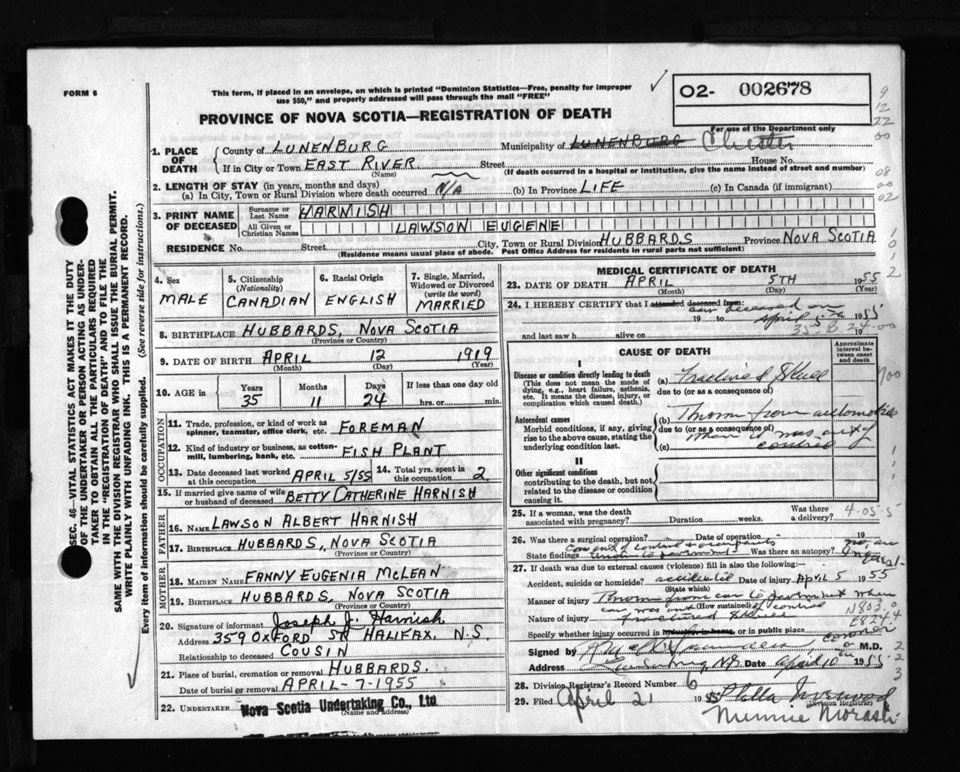 FORM 6
This form, if placed in an envelope, on which is printed "Dominion Statistics—Free, penalty for improper
use $50," and properly addressed will pass through the mail "FREE"
O2- 002678
For use of the Department only
PROVINCE OF NOVA SCOTIA—REGISTRATION OF DEATH
1. PLACE OF DEATH
County of LUNENBURG Municipality of LUNENBURG Chester
If in City or Town EAST RIVER Street House No.
(Name) (If death occurred in a hospital or institution, give the name instead of street and number)
2. LENGTH OF STAY (in years, months and days)
(a) In City, Town or Rural Division where death occurred N/A (b) In Province LIFE (c) In Canada (if immigrant)
3. PRINT NAME OF DECEASED
Surname or Last Name HARNISH
All Given or Christian Names LAWSON EUGENE
RESIDENCE No. Street City, Town or Rural Division HUBBARDS Province NOVA SCOTIA
(Residence means usual place of abode. Post Office Address for residents in rural parts not sufficient)
4. Sex MALE
5. Citizenship (Nationality) CANADIAN
6. Racial Origin ENGLISH
7. Single, Married, Widowed or Divorced (write the word) MARRIED
8. BIRTHPLACE HUBBARDS, NOVA SCOTIA
(Province or Country)
9. DATE OF BIRTH APRIL 12 1919
(Month) (Day) (Year)
10. AGE in Years 35 Months 11 Days 24 If less than one day old hrs. or min.
OCCUPATION
11. Trade, profession, or kind of work as spinner, teamster, office clerk, etc. FOREMAN
12. Kind of industry or business, as cotton-mill, lumbering, bank, etc. FISH PLANT
13. Date deceased last worked at this occupation APRIL 5/55 14. Total yrs. spent in this occupation 2
15. If married give name of wife or husband of deceased BETTY CATHERINE HARNISH
FATHER
16. NAME LAWSON ALBERT HARNISH
17. BIRTHPLACE HUBBARDS, NOVA SCOTIA
(Province or Country)
MOTHER
18. MAIDEN NAME FANNY EUGENIA MCLEAN
19. BIRTHPLACE HUBBARDS, NOVA SCOTIA
(Province or Country)
20. Signature of informant Joseph J. Harnish
Address 359 OXFORD STR HALIFAX, N.S.
Relationship to deceased COUSIN
21. Place of burial, cremation or removal HUBBARDS.
Date of burial or removal APRIL-7-1955
22. UNDERTAKER Nova Scotia Undertaking Co., Ltd
(Name and address)
MEDICAL CERTIFICATE OF DEATH
23. DATE OF DEATH APRIL 5TH 1955
(Month) (Day) (Year)
24. I HEREBY CERTIFY that I attended deceased from:
saw deceased on
19 to April 5 1955
and last saw h alive on 19
CAUSE OF DEATH
Approximate interval between onset and death
I
Disease or condition directly leading to death
(This does not mean the mode of dying, e.g., heart failure, asthenia, etc. It means the disease, injury, or complication which caused death.)
(a) Fractured Skull
due to (or as a consequence of)
Antecedent causes
Morbid conditions, if any, giving rise to the above cause, stating the underlying condition last.
(b) Thrown from automobile
due to (or as a consequence of)
when it was out of
(c) control
II
Other significant conditions
contributing to the death, but not related to the disease or condition causing it.
25. If a woman, was the death associated with pregnancy? Duration weeks. Was there a delivery?
4-05-5
26. Was there a surgical operation? Date of operation 19
State findings Was there an autopsy? Inquest
27. If death was due to external causes (violence) fill in also the following:
Accident, suicide or homicide? accidental Date of injury April 5 1955
(State which)
Manner of injury Thrown from car to pavement when
car was out of control
(How sustained)
Nature of injury fractured skull
N803.0
E824.4
Specify whether injury occurred in industry, in home, or in public place
Signed by M.D. coroner
Address Lunenburg, N.S. Date April 10 1955
28. Division Registrar's Record Number 6
29. Filed April 21 1955
(Division Registrar)
Minnie
SEC. 46—VITAL STATISTICS ACT MAKES IT THE DUTY
OF THE UNDERTAKER OR PERSON ACTING AS UNDER-
TAKER TO OBTAIN ALL THE PARTICULARS REQUIRED
IN THE "REGISTRATION OF DEATH" AND TO FILE THE
SAME WITH THE DIVISION REGISTRAR WHO SHALL ISSUE THE BURIAL PERMIT.
WRITE PLAINLY WITH UNFADING INK. THIS IS A PERMANENT RECORD.
Every item of information should be carefully supplied. (See reverse side for instructions.)